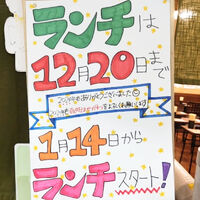 ランチは
12月20日まで
2024年もありがとうございました
よろしくお願いします
1月14日から
ランチスタート!